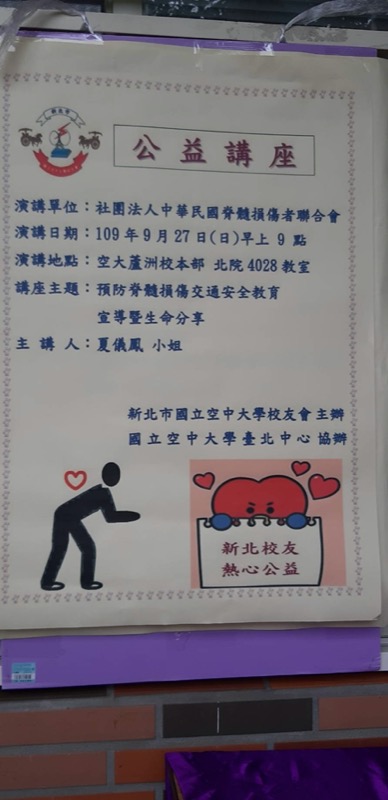 公益講座
演講單位：社團法人中華民國脊髓損傷者聯合會
演講日期：109年9月27日(日)早上 9 點
演講地點：空大蘆洲校本部 北院 4028 教室
講座主題：預防脊髓損傷交通安全教育
宣導暨生命分享
主 講 人：夏儀鳳 小姐
新北市國立空中大學校友會 主辦
國立空中大學臺北中心 協辦
新北校友
熱心公益